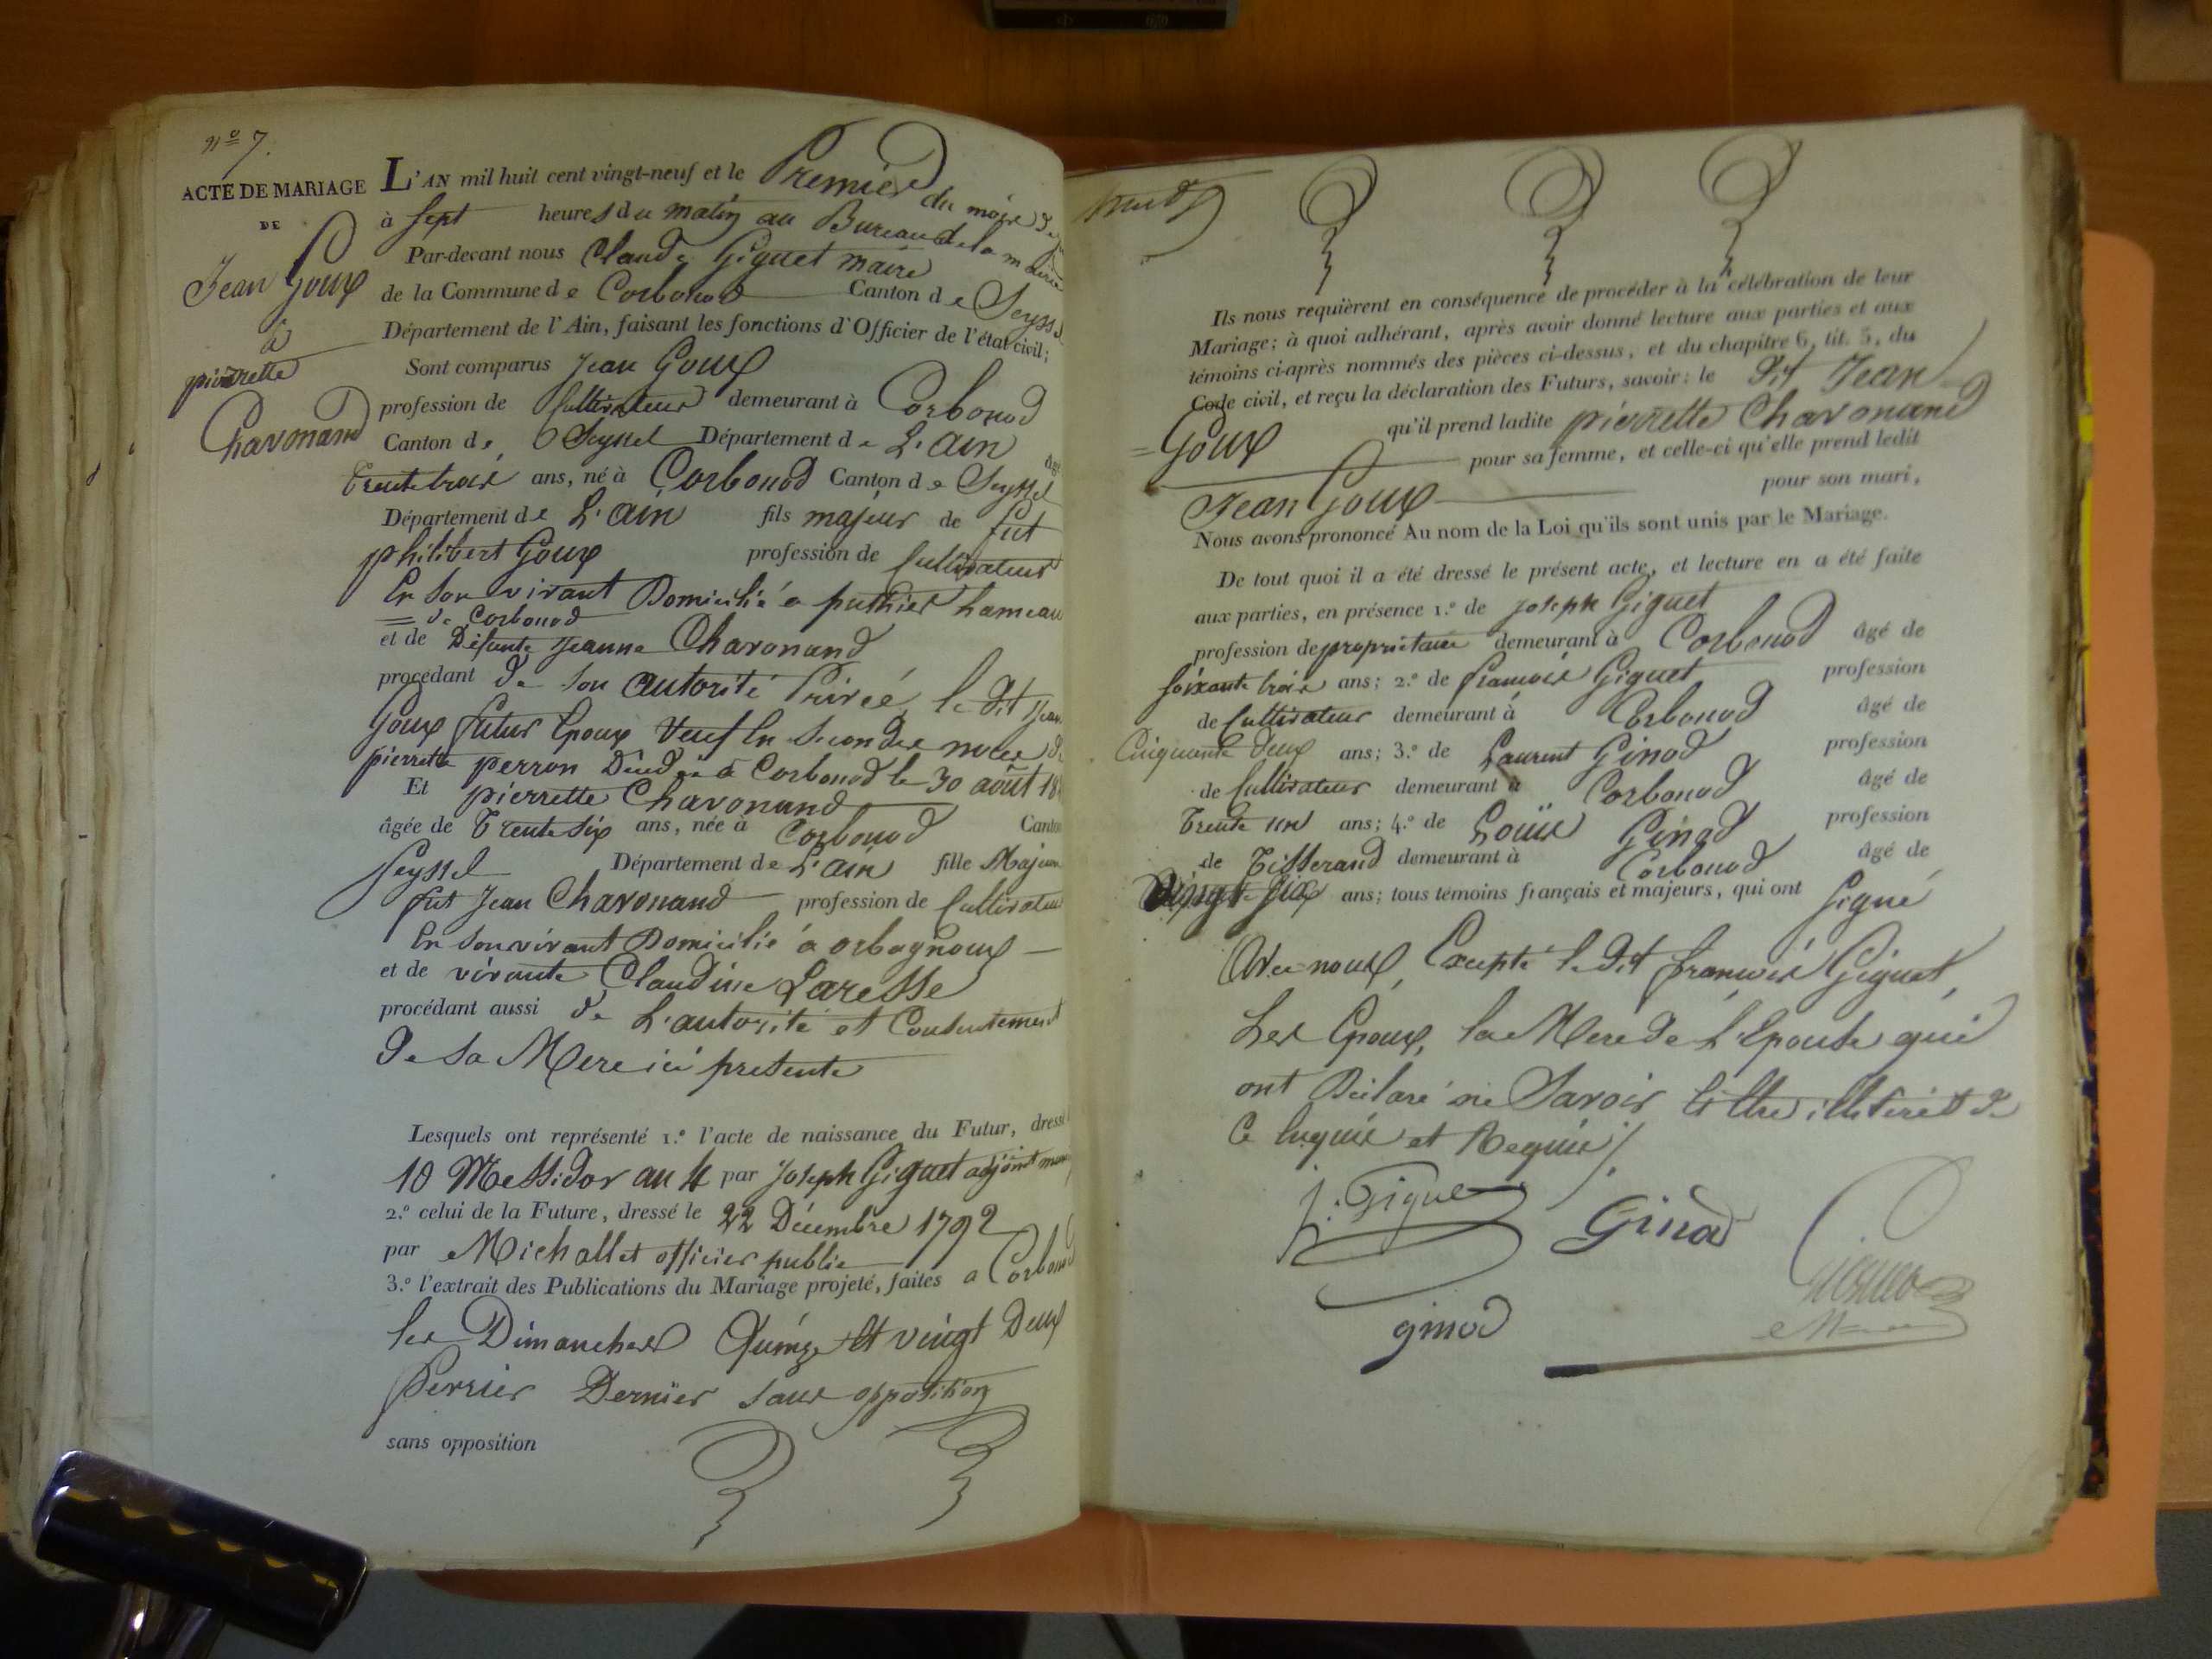 nº 7.
ACTE DE MARIAGE
DE
Jean Goux
à
pierrette
Chavonand
L'AN mil huit cent vingt-neuf et le Premier du mois de
à Sept heures du matin au Bureau de la mairie
Par-devant nous Claude Giguet maire
de la Commune de Corbonod Canton de Seyssel
Département de l'Ain, faisant les fonctions d'Officier de l'état civil;
Sont comparus Jean Goux
profession de Cultivateur demeurant à Corbonod
Canton de Seyssel Département de L'ain âgé
Trente trois ans, né à Corbonod Canton de Seyssel
Département de L'ain fils majeur de fut
philibert Goux profession de Cultivateur
En Son vivant Domicilié a puthier hameau
= de Corbonod
et de Défunte Jeanne Chavonand
procédant de Son autorité Privée, le dit Jean
Goux futur Epoux Veuf En Secondes noces de
pierrette perron Décédée à Corbonod le 30 août 18
Et pierrette Chavonand
âgée de Trente Six ans, née à Corbonod Canton
Seyssel Département de L'ain fille Majeure
fut Jean Chavonand profession de Cultivateur
En Son vivant Domicilié a orbagnoux
et de vivante Claudine Laresse
procédant aussi de L'autorité et Consentement
de Sa Mere ici presente
Lesquels ont représenté 1.º l'acte de naissance du Futur, dressé
10 Messidor an 4 par Joseph Giguet adjoint
2.º celui de la Future, dressé le 22 Décembre 1792
par Michallet officier public
3.º l'extrait des Publications du Mariage projeté, faites a Corbonod
les Dimanches Quinze et vingt Deux
Fevrier Dernier sans opposition
sans opposition
Ils nous requièrent en conséquence de procéder à la célébration de leur
Mariage; à quoi adhérant, après avoir donné lecture aux parties et aux
témoins ci-après nommés des pièces ci-dessus, et du chapitre 6, tit. 5, du
Code civil, et reçu la déclaration des Futurs, savoir: le dit Jean
= Goux qu'il prend ladite pierrette Chavonand
pour sa femme, et celle-ci qu'elle prend ledit
Jean Goux pour son mari,
Nous avons prononcé Au nom de la Loi qu'ils sont unis par le Mariage.
De tout quoi il a été dressé le présent acte, et lecture en a été faite
aux parties, en présence 1.º de Joseph Giguet
profession de propriétaire demeurant à Corbonod âgé de
Soixante trois ans; 2.º de francois Giguet profession
de Cultivateur demeurant à Corbonod âgé de
Cinquante deux ans; 3.º de Laurent Ginod profession
de Cultivateur demeurant à Corbonod âgé de
Trente un ans; 4.º de Louis Ginod profession
de Tisserand demeurant à Corbonod âgé de
Vingt Six ans; tous témoins français et majeurs, qui ont Signé
Avec nous, Excepté le dit francois Giguet,
Les Epoux, la Mere de L'Epouse qui
ont Déclaré ne Savoir Ettre illiterés de
Ce Enquis et Requis
J. Giguet
Ginod
Giguet
ginod